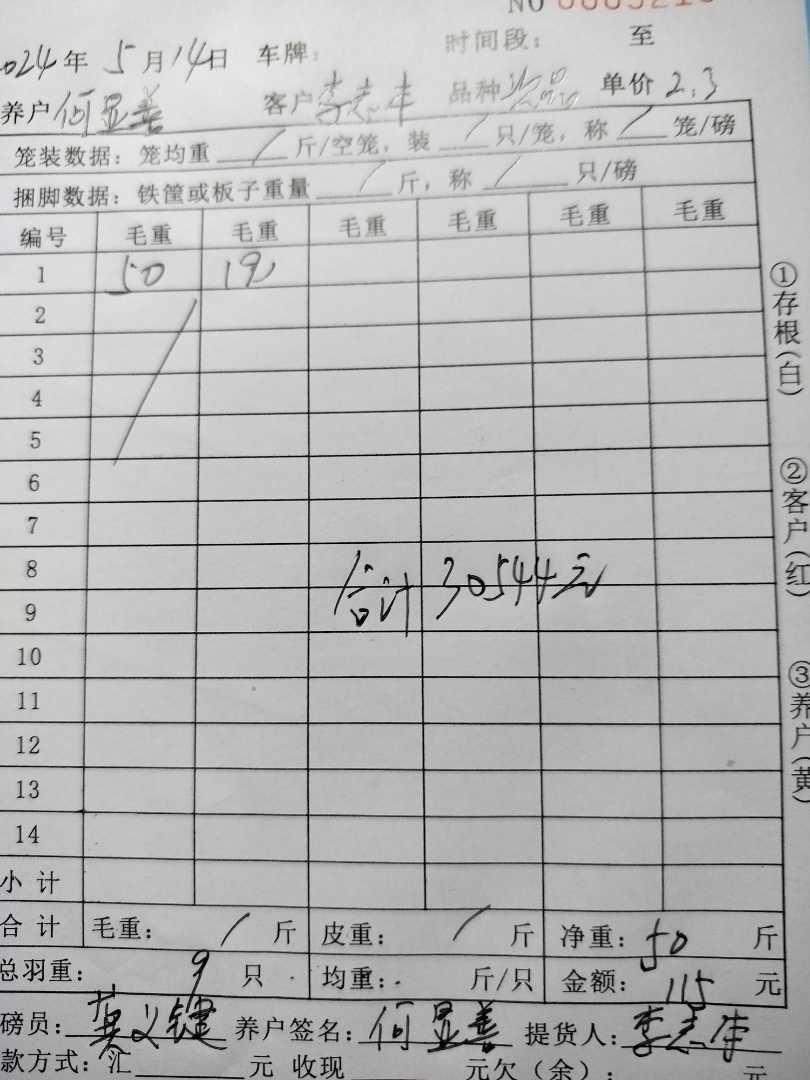 NO
2024年 5月14日 车牌: 时间段: 至
养户 何显善 客户 李志丰 品种 单价 2.3
笼装数据: 笼均重 / 斤/空笼, 装 / 只/笼, 称 / 笼/磅
捆脚数据: 铁筐或板子重量 / 斤, 称 / 只/磅
编号 毛重 毛重 毛重 毛重 毛重 毛重
1 50
2
3
4
5
6
7
8
合计 30544元
9
10
11
12
13
14
小计
合计 毛重: / 斤 皮重: / 斤 净重: 50 斤
总羽重: 9 只 均重: 斤/只 金额: 115 元
磅员: 莫义键 养户签名: 何显善 提货人: 李志丰
款方式: 汇 元 收现 元欠(余): 元
①存根(白)
②客户(红)
③养户(黄